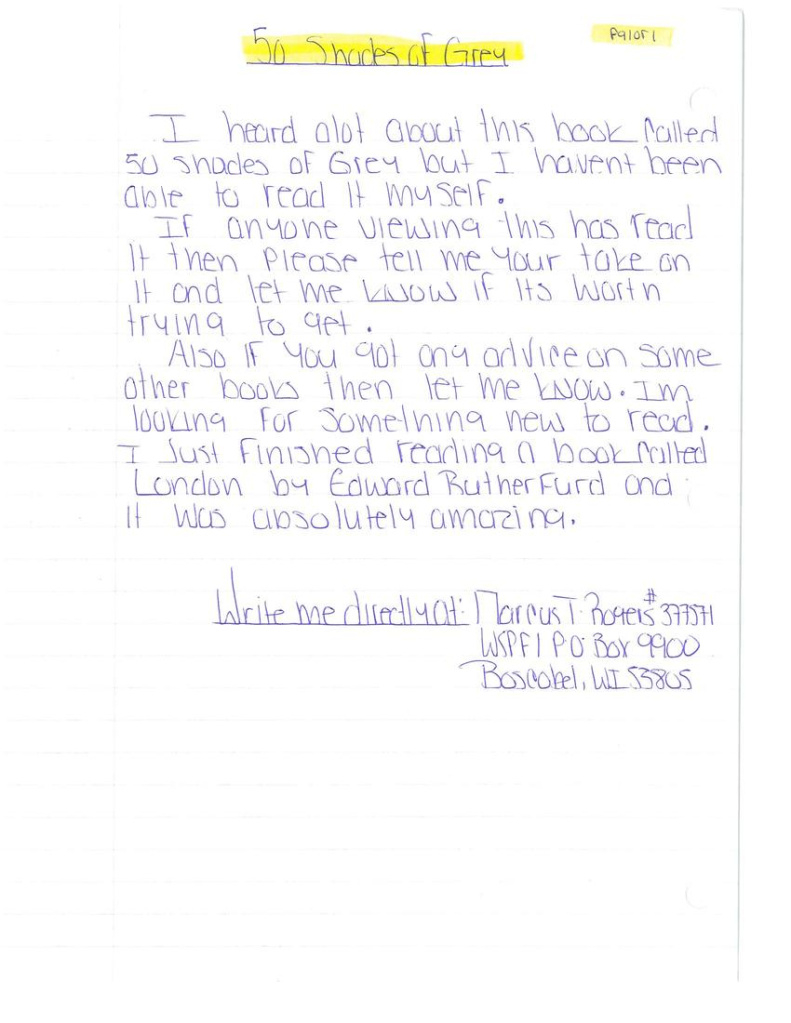 50 Shades of Grey
Pg 1 of 1
I heard alot about this book called
50 shades of Grey but I havent been
able to read it myself.
If anyone viewing this has read
it then please tell me your take on
it and let me know if its worth
trying to get.
Also if you got any advice on some
other books then let me know. Im
looking for something new to read.
I Just finished reading a book called
London by Edward Rutherfurd and
it was absolutely amazing.
Write me directly at: Marcus T. #377571
WSPF | PO Box 9900
Boscobel, WI 53805